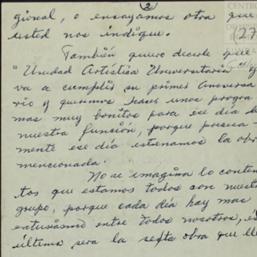 2
ginal, o ensayamos otra que
usted nos indique.
(27
CENTRO
También quiero decirle que
"Unidad Artística Universitaria"
va a cumplir su primer Aniversa
rio y queremos hacer unos progra
mas muy bonitos para ese día de
nuestra función, porque precisa-
mente ese día estrenamos la obra
mencionada.
No se imagina lo conten
tos que estamos todos con nuestro
grupo, porque cada día hay mas
entusiasmo entre todos nosotros,
última sera la septa obra que